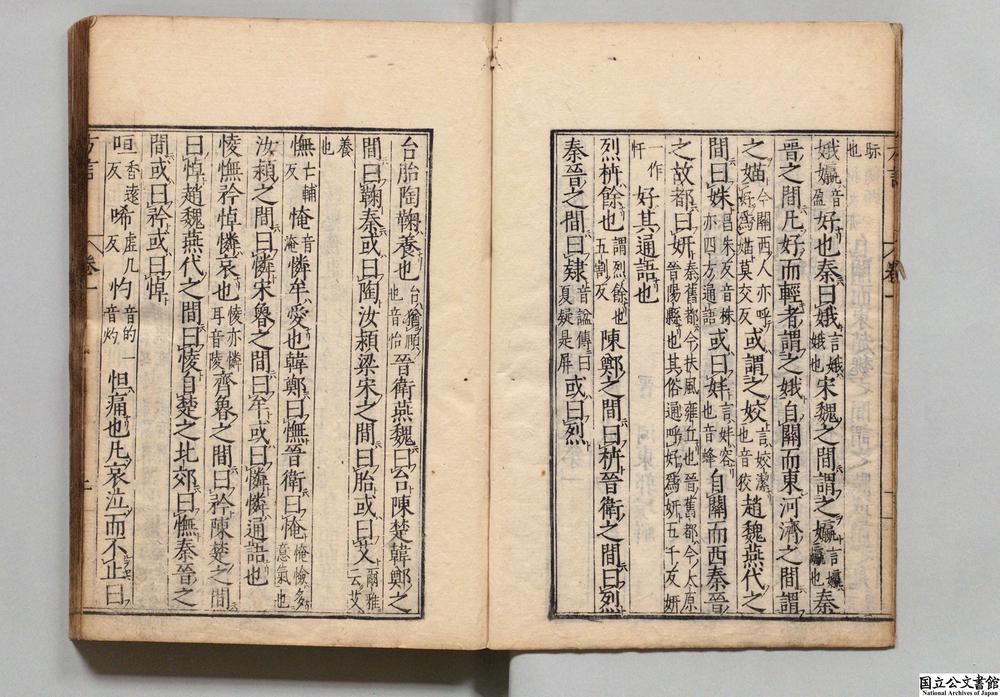 䀹也
娥𡣪音盈好也秦曰娥言娥娥也宋魏之間謂之𡣪言𡣪𡣪也秦
晉之間凡好而輕者謂之娥自關而東河濟之間謂
之媌今關西人亦呼好爲媌莫交反或謂之姣言姣潔也音狡趙魏燕代之
間曰姝昌朱反又音株亦四方通語或曰妦言妦容也音蜂自關而西秦晉
之故都曰妍秦舊都今扶風雍丘也晉舊都今太原晉陽縣也其俗通呼好爲妍五千反妍
一作忓好其通語也
烈枿餘也謂烈餘也五割反陳鄭之間曰枿晉衛之間曰烈
秦晉之間曰肄音謚傳曰夏肄是屏或曰烈
台胎陶鞠養也台猶頤也音怡晉衛燕魏曰台陳楚韓鄭之
間曰鞠秦或曰陶汝潁梁宋之間曰胎或曰艾爾雅云艾
養也
憮亡輔反㤿音淹憐牟愛也韓鄭曰憮晉衛曰㤿㤿憸多意氣也
汝潁之間曰憐宋魯之間曰牟或曰憐憐通語也
㥄憮矜悼憐哀也㥄亦憐耳音陵齊魯之間曰矜陳楚之間
曰悼趙魏燕代之間曰㥄自楚之北郊曰憮秦晉之
間或曰矜或曰悼
咺香遠反唏虛几反灼音的一音灼怛痛也凡哀泣而不止曰
方言
卷一
國立公文書館
National Archives of Japan